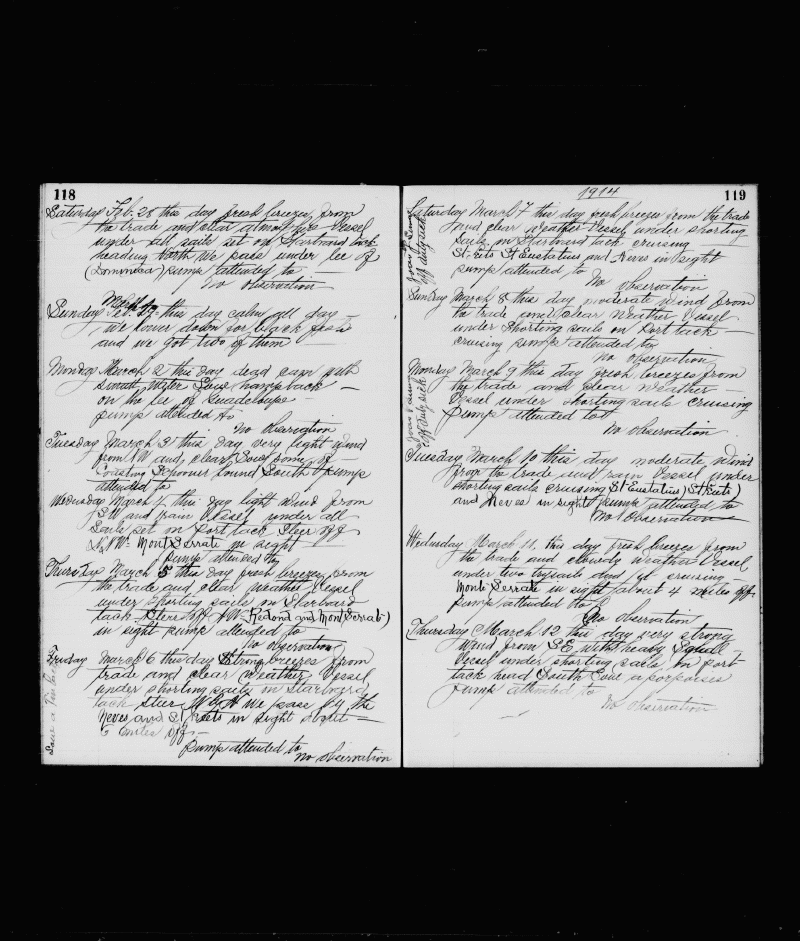 118
Saturday Feb. 28 this day fresh breezes from
the trade and clear Vessel
under all sails set on Starboard tack
heading North We pass under lee of
(Dominica) pump attended to
no observation
Sunday March this day calm all day
we lower down for black fish
and we got two of them
Monday March 2 this day dead calm with
smooth water humpback
on the lee of Guadeloupe
pump attended to
no observation
Tuesday March 3 this day very light wind
from NW and clear
Coasting Schooner bound South pump
attended to
Wednesday March 4 this day light wind from
SW and rain Vessel under all
sails set on Port tack Steer off
Mont Serrate in sight
pump attended to
Thursday March 5 this day fresh breezes from
the trade and clear weather Vessel
under shorting sails on Starboard
tack Steer off NW Redond and Mont Serrat)
in sight pump attended to
no observation
Friday March 6 this day Strong breezes from
trade and clear weather Vessel
under shorting sails on Starboard
tack Steer We pass by the
Neves and St Keets in sight about
miles off
pump attended to
no observation
Saw a
1914
119
Saturday March 7 this day fresh breezes from the trade
and clear weather Vessel under shorting
sails on Starboard tack cruising
St Kits St Eustatius and Neves in sight
pump attended to
no observation
off duty sick
Sunday March 8 this day moderate wind from
the trade and clear weather Vessel
under shorting sails on Port tack
cruising pump attended to
no observation
Monday March 9 this day fresh breezes from
the trade and clear weather
Vessel under shorting sails cruising
Pump attended to
no observation
off duty sick
Tuesday March 10 this day moderate wind
from the trade and rain Vessel under
shorting sails cruising St Eustatius) St Keets)
and Neves in sight pump attended to
no observation
Wednesday March 11, this day fresh breezes from
the trade and cloudy weather Vessel
under two trysails and jib cruising
Monte Serrate in sight about 4 miles off
pump attended to
No observation
Thursday March 12 this day very strong
wind from SE with heavy Squall
Vessel under shorting sails on port
tack head South Saw a porpoises
pump attended to
no observation